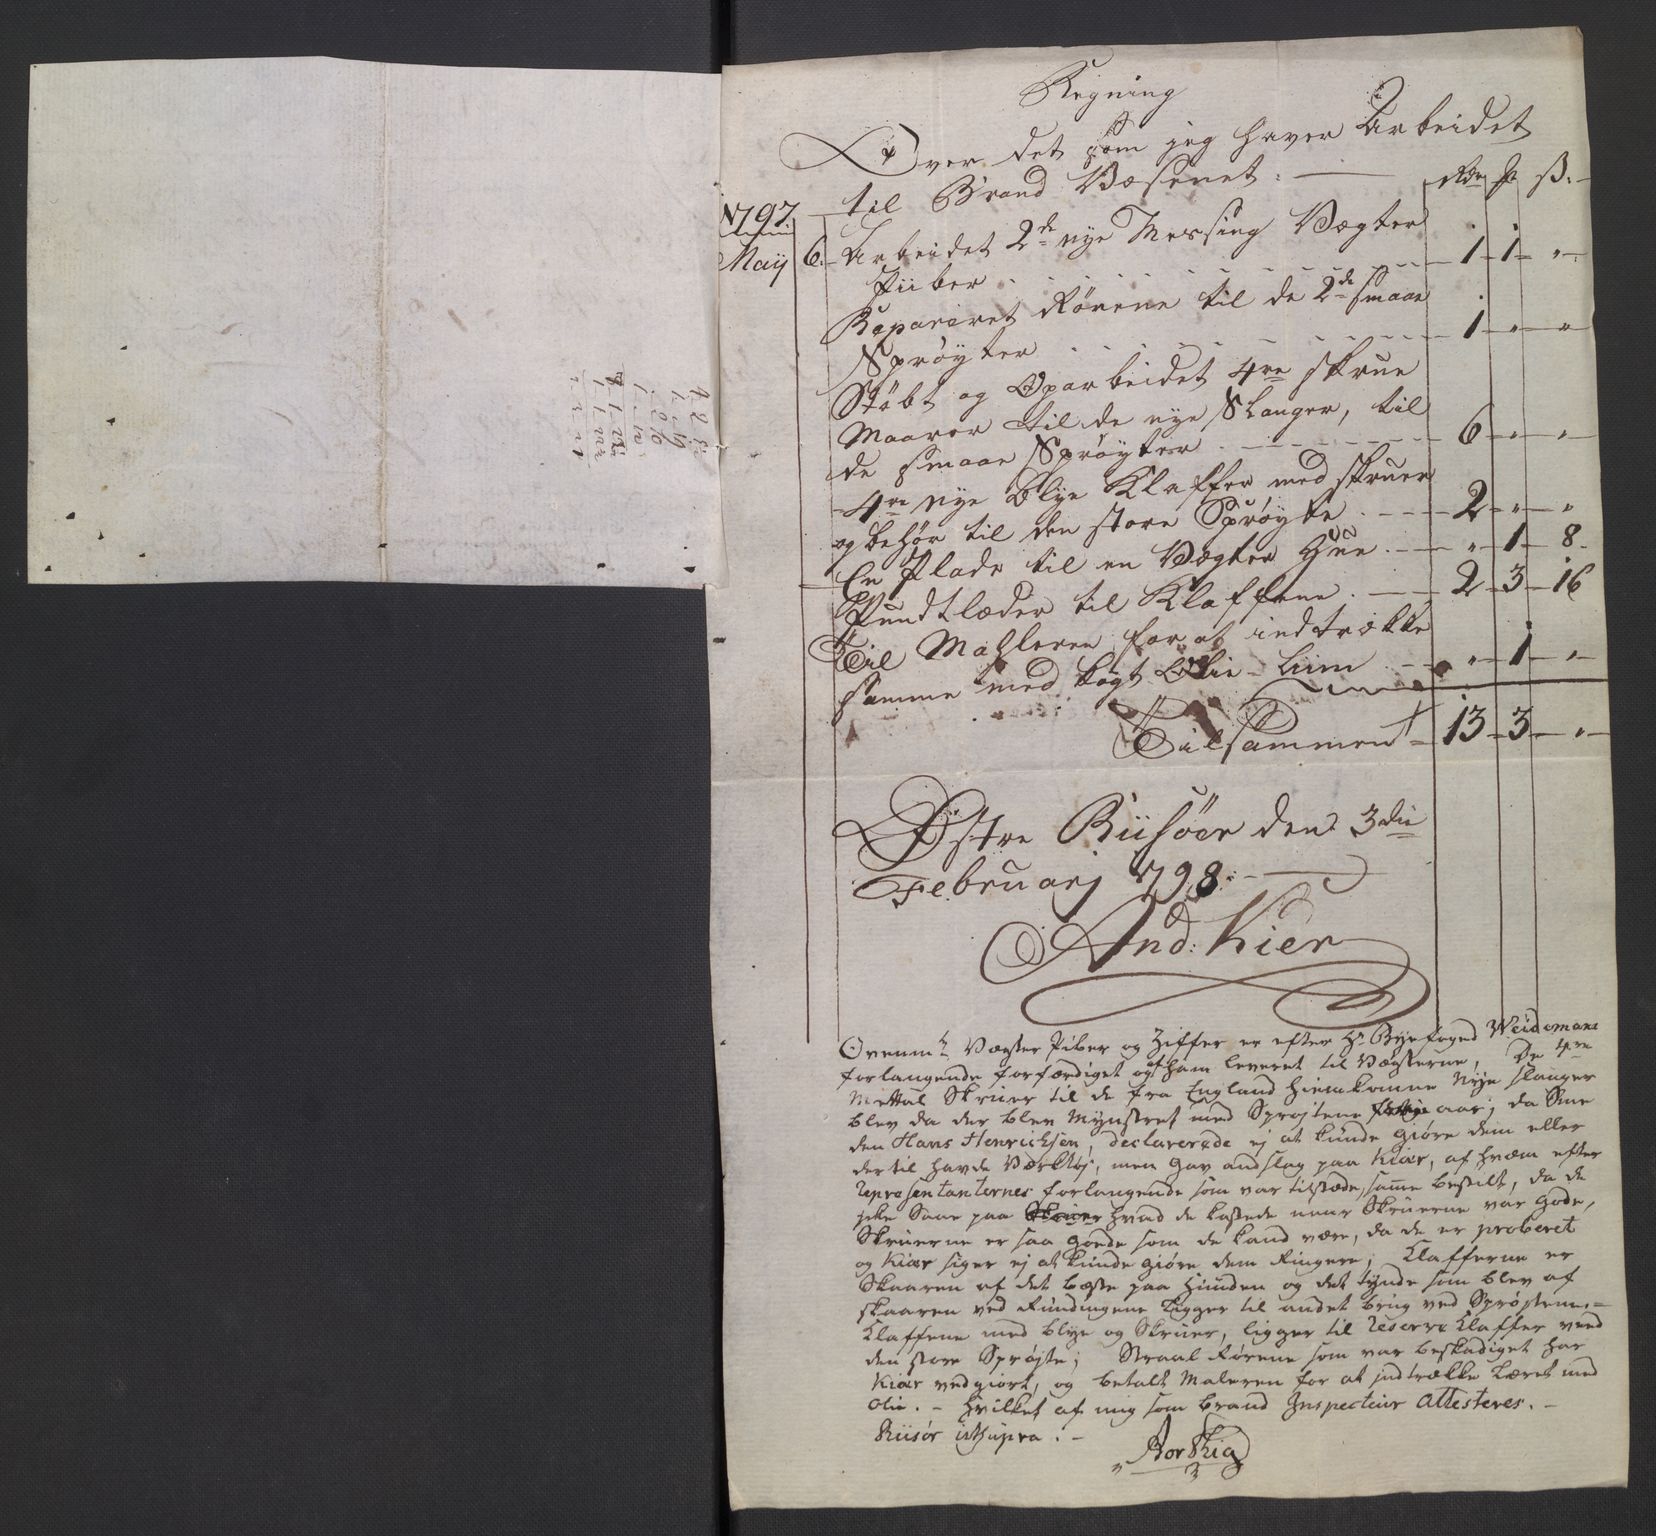 Regning
Over det som jeg haver Arbeidet
til Brand Væsenet. Rdr ß.
1797.
Maÿ 6. Arbeidet 2de nye Messing Vægter
Piiber 1 1 "
Repareret Rörene til de 2de smaae
Spröyter 1 " "
Stöbt og Oparbeidet 4re skrue
Maarer til de nye Slanger, til
de smaae Spröyter 6 " "
4re nye blye Klaffer med skruer
og behör til den store Spröyte 2 " "
En Plade til en Vægter Hue " 1 8
Pundtlæder til Klafferne 2 3 16
Til Mahleren for at indtrække
samme med kogt Olie-Liim " 1 "
Tilsammen 13 3 "
Östre Riisöer den 3die
Februarj 1798.
And: Kier
Ovenmte Vægter Piber og Ziffer er efter Hr Byefoged Weidemans
forlangende forfærdiget og af ham leveret til Vægterne, De 4re
Mettal Skruer til de fra England hiemkomne Nye slanger
blev da der blev Mynstret med Sprøjtene aar; da Sme
den Hans Henrichsen, declarerede ej at kunde giøre dem eller
dertil havde Værktøj, men gav andslag paa Kiær, af hvæm efter
Repræsentanternes forlangende som var tilstæde, samme bestilt, da de
ikke Saae paa hvad de kostede naar Skruerne var gode,
Skruerne er saa goede som de kand være, da de er proberet
og Kiær siger ej at kunde giøre dem Ringere; Klafferne er
Skaaren af det bæste paa Huuden og det tynde som blev af
skaaren ved Rundingene ligger til andet brug ved Sprøjtene.=
Klaffene med blye og Skruer, ligger til Reserve Klaffer ved
den store Sprøjte; Straal Rørene som var beskadiget har
Kiær vedgiort, og betalt Maleren for at indtrække Læret med
Olie. - Hvilket af mig som brand Inspecteur Attesteres. -
Riisör ut supra. -